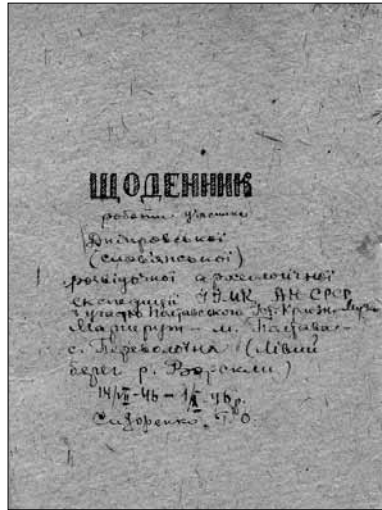 ЩОДЕННИК
роботи учасника
Дніпровської
(слов'янської)
розвідочної археологічної
експедиції ІІМК АН СРСР
з участю Полтавського
Маршрут – м. Полтава –
с. Переволочна (Лівий
берег р. Ворскли)
14/VII-46 –
Сидоренко, Г. О.